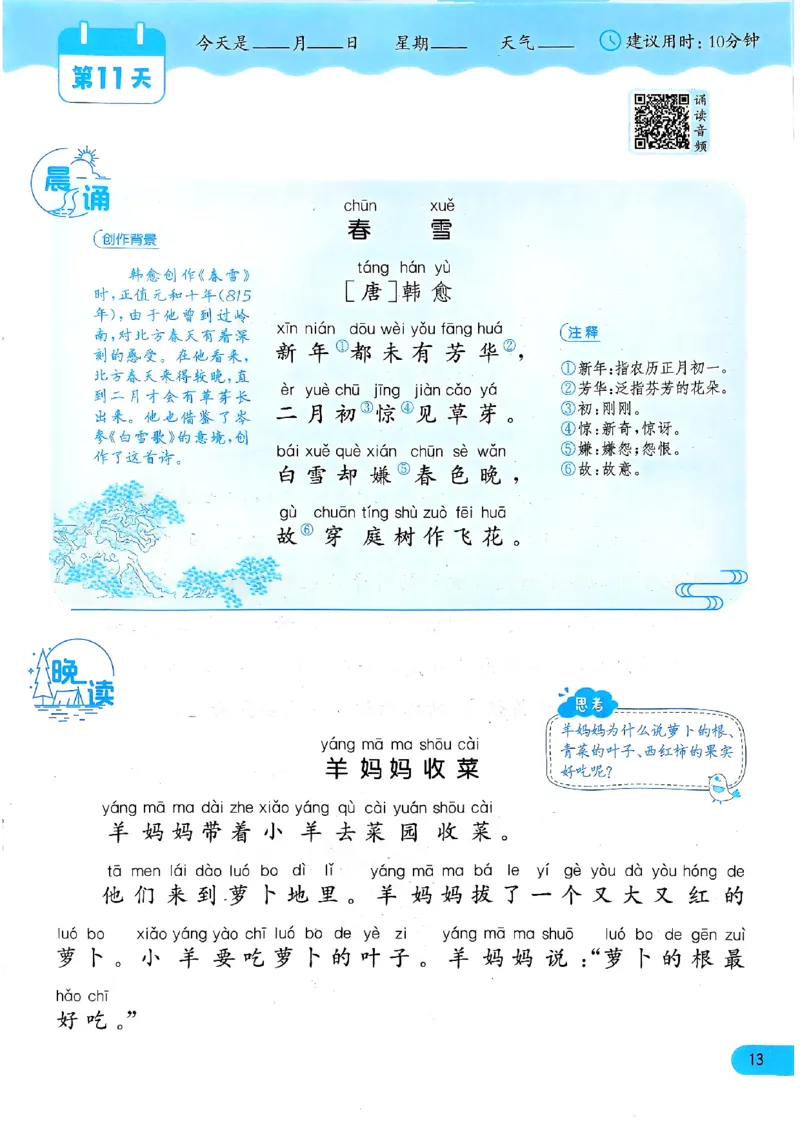 今天是____月____日 星期____ 天气____ 建议用时：10分钟
第11天
诵读音频
晨诵
chūn xuě
春 雪
táng hán yù
[唐]韩愈
创作背景
韩愈创作《春雪》
时，正值元和十年(815
年)，由于他曾到过岭
南，对北方春天有着深
刻的感受。在他看来，
北方春天来得较晚，直
到二月才会有草芽长
出来。他也借鉴了岑
参《白雪歌》的意境，创
作了这首诗。
xīn nián dōu wèi yǒu fāng huá
新年①都未有芳华②，
èr yuè chū jīng jiàn cǎo yá
二月初③惊④见草芽。
bái xuě què xián chūn sè wǎn
白雪却嫌⑤春色晚，
gù chuān tíng shù zuò fēi huā
故⑥穿庭树作飞花。
注释
①新年：指农历正月初一。
②芳华：泛指芬芳的花朵。
③初：刚刚。
④惊：新奇，惊讶。
⑤嫌：嫌怨；怨恨。
⑥故：故意。
晚读
思考
羊妈妈为什么说萝卜的根、
青菜的叶子、西红柿的果实
好吃呢？
yáng mā ma shōu cài
羊妈妈收菜
yáng mā ma dài zhe xiǎo yáng qù cài yuán shōu cài
羊妈妈带着小羊去菜园收菜。
tā men lái dào luó bo dì lǐ yáng mā ma bá le yí gè yòu dà yòu hóng de
他们来到萝卜地里。羊妈妈拔了一个又大又红的
luó bo xiǎo yáng yào chī luó bo de yè zi yáng mā ma shuō luó bo de gēn zuì
萝卜。小羊要吃萝卜的叶子。羊妈妈说：“萝卜的根最
hǎo chī
好吃。”
13